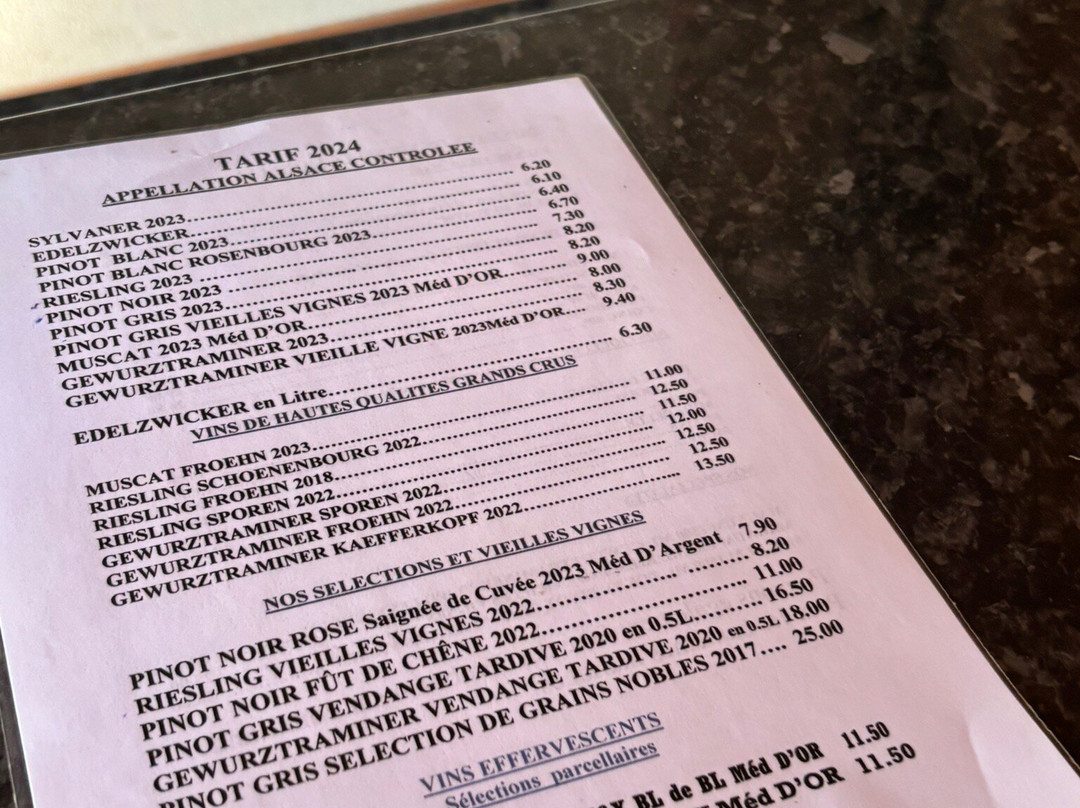 TARIF 2024
APPELLATION ALSACE CONTROLEE
SYLVANER 2023.......... 6.20
EDELZWICKER.......... 6.10
PINOT BLANC 2023.......... 6.40
PINOT BLANC ROSENBOURG 2023.......... 6.70
RIESLING 2023.......... 7.30
PINOT NOIR 2023.......... 8.20
PINOT GRIS 2023.......... 8.20
PINOT GRIS VIEILLES VIGNES 2023 Méd D'OR 9.00
MUSCAT 2023 Méd D'OR.......... 8.00
GEWURZTRAMINER 2023.......... 8.30
GEWURZTRAMINER VIEILLE VIGNE 2023Méd D'OR.... 9.40
EDELZWICKER en Litre.......... 6.30
VINS DE HAUTES QUALITES GRANDS CRUS
MUSCAT FROEHN 2023.......... 11.00
RIESLING SCHOENENBOURG 2022.......... 12.50
RIESLING FROEHN 2018.......... 11.50
RIESLING SPOREN 2022.......... 12.00
GEWURZTRAMINER SPOREN 2022.......... 12.50
GEWURZTRAMINER FROEHN 2022.......... 12.50
GEWURZTRAMINER KAEFFERKOPF 2022.......... 13.50
NOS SELECTIONS ET VIEILLES VIGNES
PINOT NOIR ROSE Saignée de Cuvée 2023 Méd D'Argent 7.90
RIESLING VIEILLES VIGNES 2022.......... 8.20
PINOT NOIR FÛT DE CHÊNE 2022.......... 11.00
PINOT GRIS VENDANGE TARDIVE 2020 en 0.5L.......... 16.50
GEWURZTRAMINER VENDANGE TARDIVE 2020 en 0.5L 18.00
PINOT GRIS SELECTION DE GRAINS NOBLES 2017.... 25.00
VINS EFFERVESCENTS
Sélections parcellaires
BL de BL Méd D'OR 11.50
Méd D'OR 11.50